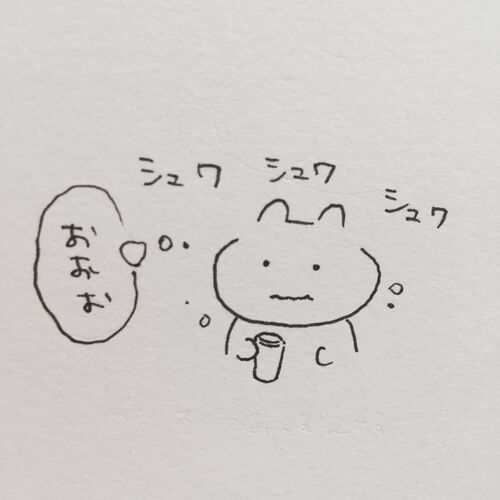 シュワ
シュワ
シュワ
おおお